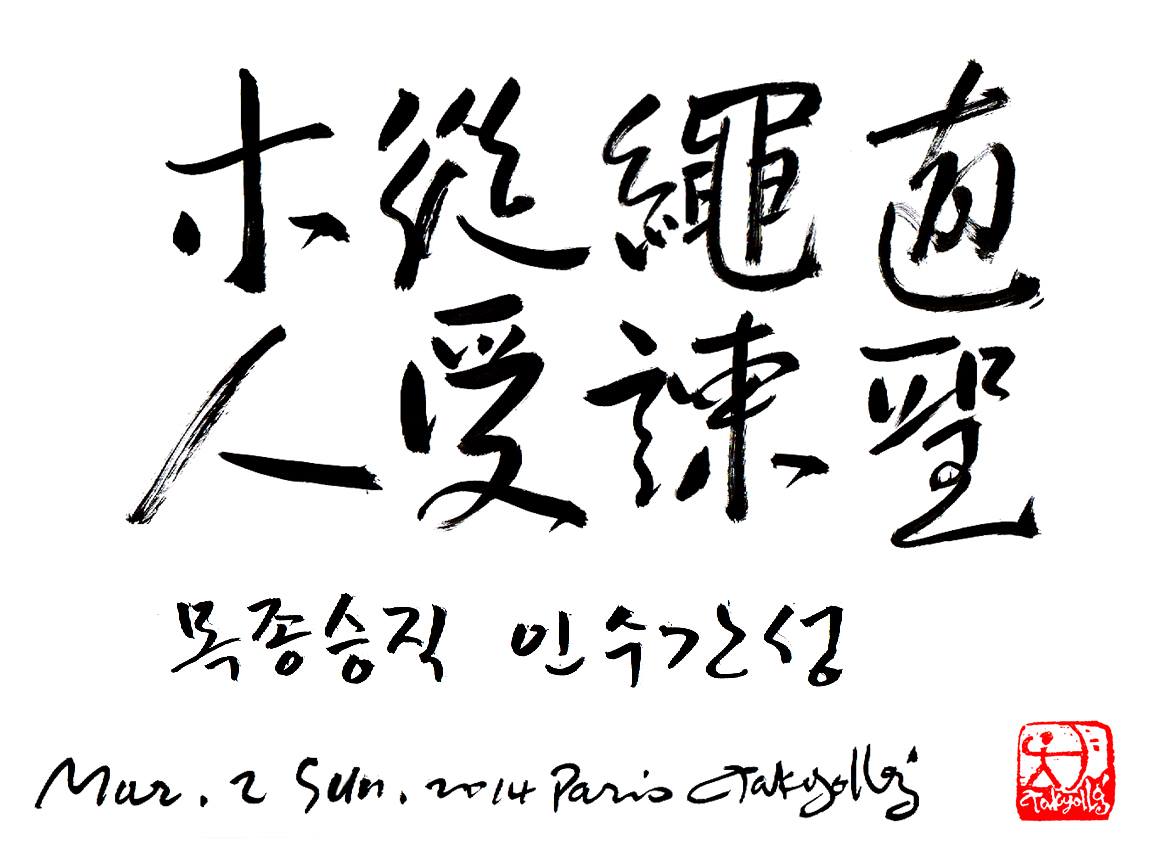 木從繩直
人受諫聖
목종승직 인수간성
Mar. 2 Sun. 2014 Paris Takyollg
Takyollg